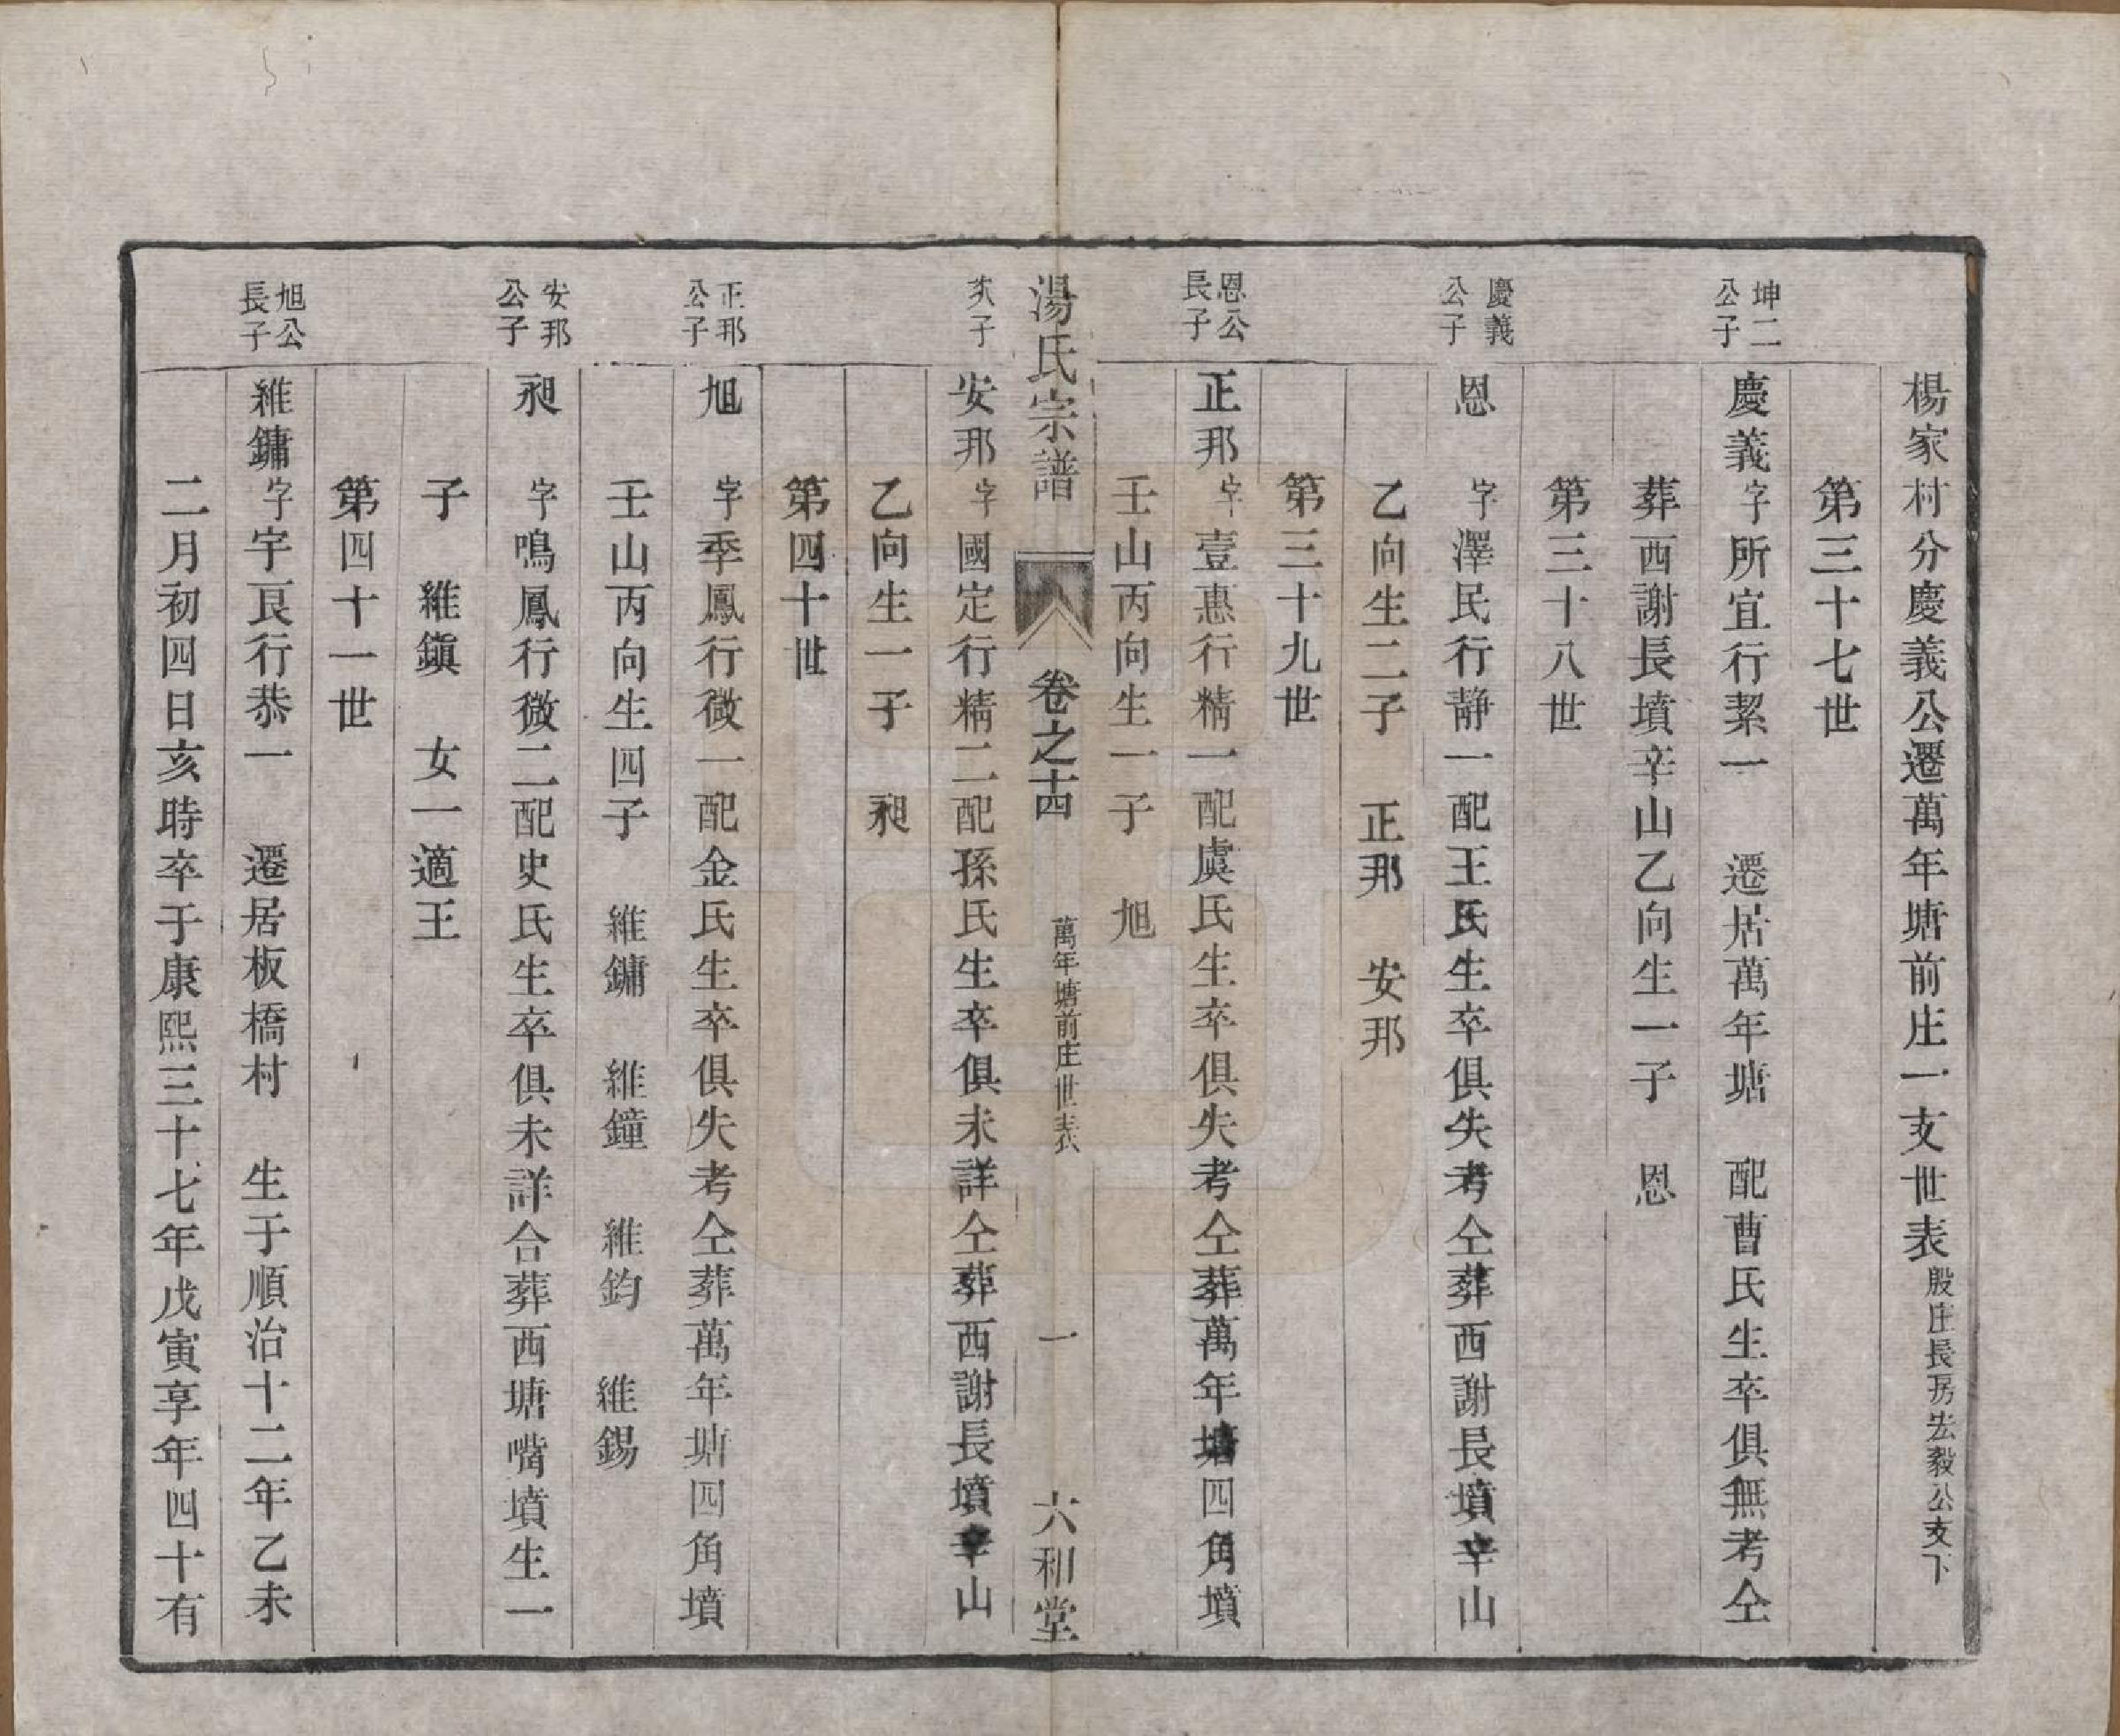 楊家村分慶義公遷萬年塘前庄一支世表殷庄長房宏毅公支下
第三十七世
坤二公子
慶義字所宜行絜一　遷居萬年塘　配曹氏生卒俱無考仝
葬西謝長墳辛山乙向生一子　恩
第三十八世
慶義公子
恩　字澤民行靜一配王氏生卒俱失考仝葬西謝長墳辛山
乙向生二子　正那　安那
第三十九世
恩公長子
正那字壹惠行精一配虞氏生卒俱失考仝葬萬年塘四角墳
壬山丙向生一子　旭
湯氏宗譜　卷之十四　萬年塘前庄世表　一　六和堂
次子
安那字國定行精二配孫氏生卒俱未詳仝葬西謝長墳辛山
乙向生一子　昶
第四十世
正那公子
旭　字季鳳行微一配金氏生卒俱失考仝葬萬年塘四角墳
壬山丙向生四子　維鏞　維鐘　維鈞　維錫
安那公子
昶　字鳴鳳行微二配史氏生卒俱未詳合葬西塘嘴墳生一
子　維鎭　女一適王
第四十一世
旭公長子
維鏞字宇良行恭一　遷居板橋村　生于順治十二年乙未
二月初四日亥時卒于康熙三十七年戊寅享年四十有